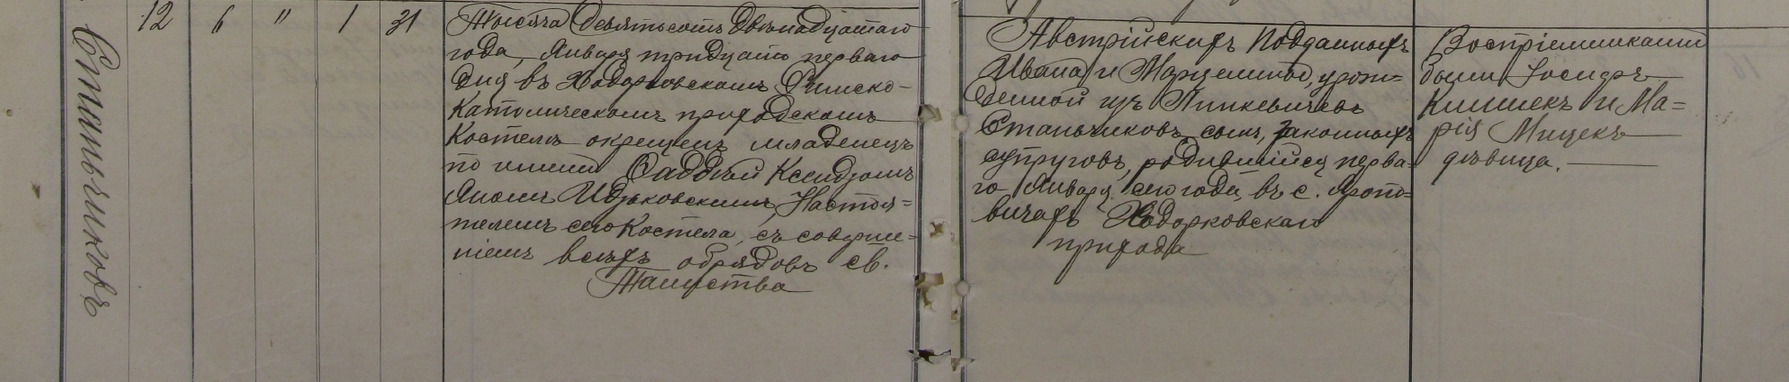 Станьчиковъ
12 6 " 1 31
Тысяча девятьсотъ двѣнадцатаго
года, Января тридцать перваго
дня въ Ходорковскомъ Римско-
Католическомъ приходскомъ
Костелѣ окрещенъ младенецъ
по имени Фаддей Ксендзомъ
Яномъ Идзьковскимъ, Настоя=
телемъ сего Костела, съ соверше=
ніемъ всѣхъ обрядовъ св.
Таинства
Австрійскихъ Подданныхъ
Ивана и Марцелины, урож=
денной изъ Пинкевичевъ
Станьчиковъ сынъ, законныхъ
супруговъ, родившійся перва=
го Января сего года въ с. Яропо=
вичахъ Ходорковскаго
прихода
Воспріемниками
были Іосифъ
Климекъ и Ма=
рія Мицекъ
дѣвица.